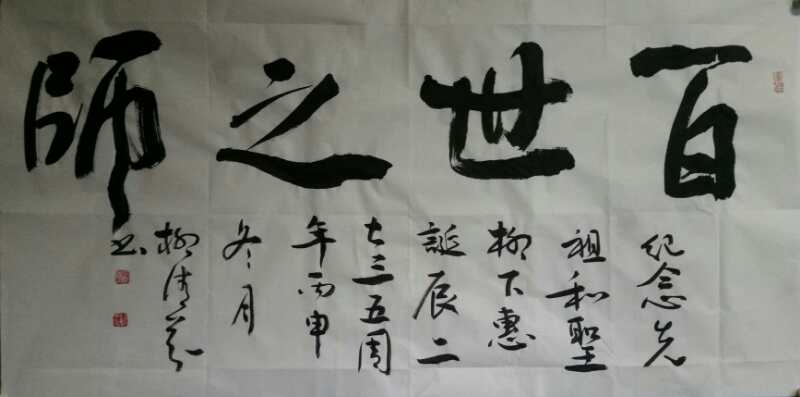 百世之師
纪念先
祖和聖
柳下惠
誕辰二
七三五周
年丙申
冬月
柳清
书